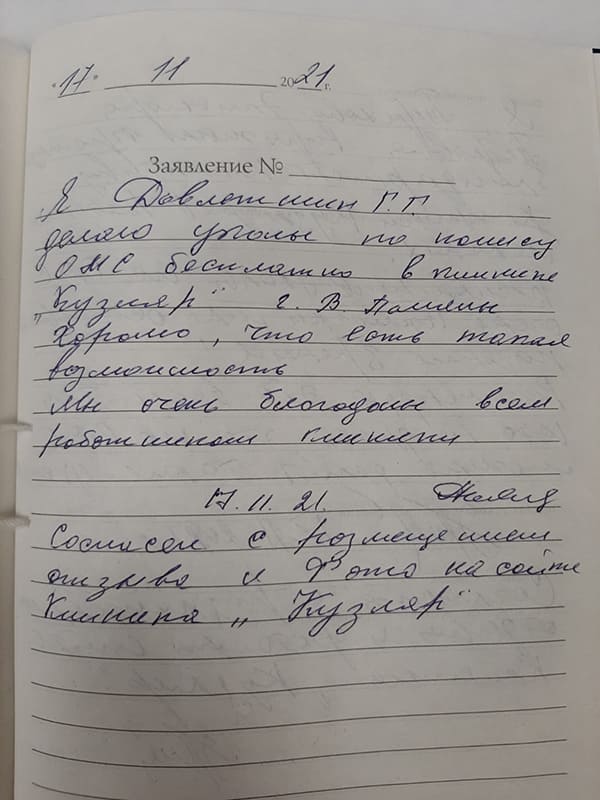 "17" 11 2021 г.
Заявление №
Я Давлетшин Г.Г.
делаю уколы по полису
ОМС бесплатно в клинике
„Кузляр" г. В. Поляны
Хорошо, что есть такая
возможность
Мы очень благодарны всем
работникам клиники
17.11.21.
Согласен с размещением
отзыва и Фото на сайте
Клиника „Кузляр"